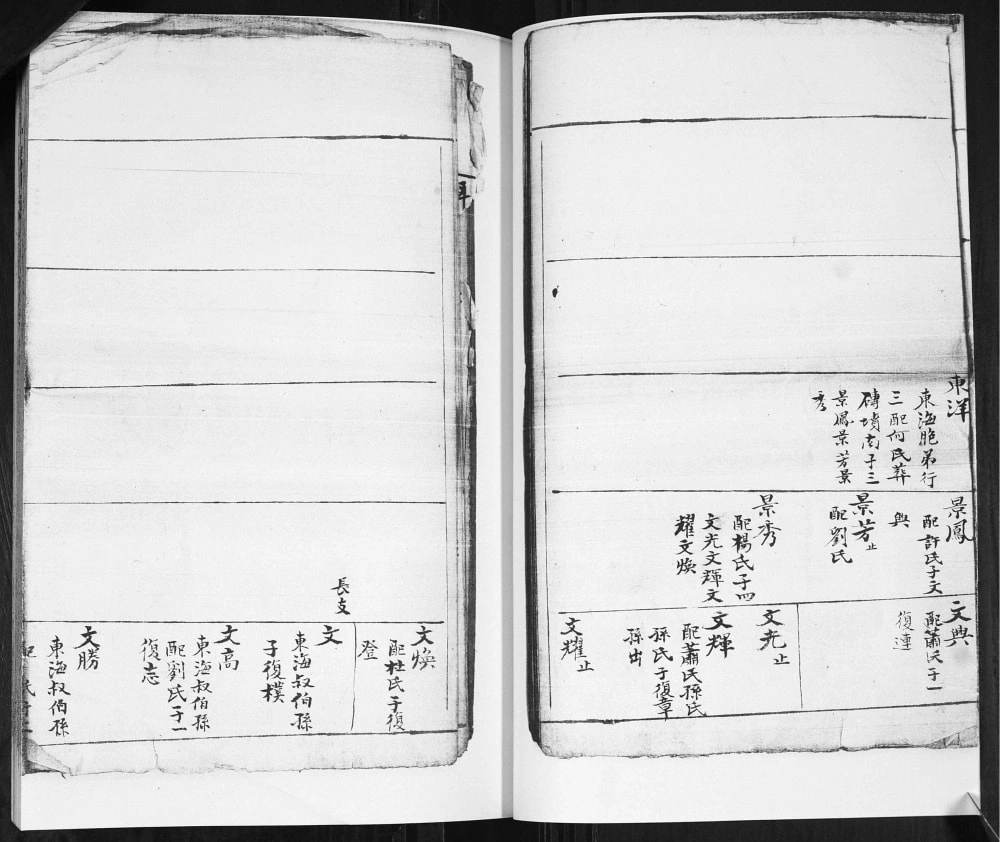 東洋
東海胞弟行
三配何氏葬
磚墳南子三
景鳳景芳景
秀
景鳳
配許氏子文
興
景芳止
配劉氏
景秀
配楊氏子四
文光文輝文
耀文煥
文興
配蕭氏子一
復連
文光止
文輝
配蕭氏孫氏
孫氏子復章
孫出
文耀止
長支
文煥
配杜氏子復
登
文
東海叔伯孫
子復樸
文高
東海叔伯孫
配劉氏子一
復志
文勝
東海叔伯孫